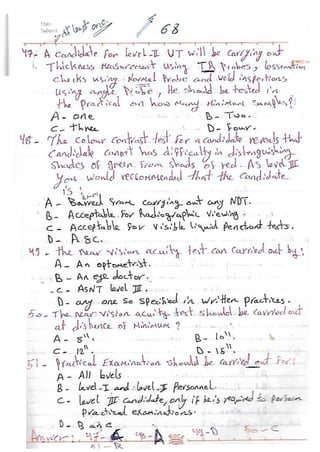 at least one
68
47- A Candidate for level-II UT will be carrying out
Thickness Measurement using TR Probes, lossmation
checks using Normal Probe and weld inspections
using angle Probe, He should be tested in
the Practical on how many Minimum samples?!
A - one B - Two.
C - three D - Four.
48 - The colour contrast test for a candidate reveals that
Candidate cannot has difficulty in distinguishing
shades of green from shads of red. As level III
you would recommended that the Candidate
is :
A - Barred from carrying out any NDT.
B - Acceptable For Radiographic Viewing.
C - Acceptable For Visible liquid Penetrant tests.
D - A & C.
49 - the near vision acuity test can carried out by:
A - An optometrist.
B - An eye doctor.
C - ASNT level III.
D - any one so specified in written practices.
50 - The near vision acuity test should be carried out
at distance of Minimum ?
A - 8". B - 10".
C - 12". D - 15".
51 - Practical Examination should be carried out for:
A - All levels
B - level-I and level-II Personnel.
C - level III candidate, only if he is required to perform
Practical examinations.
D - B and C
Answer: 47-C 48-A 49-D 50-C
51-B